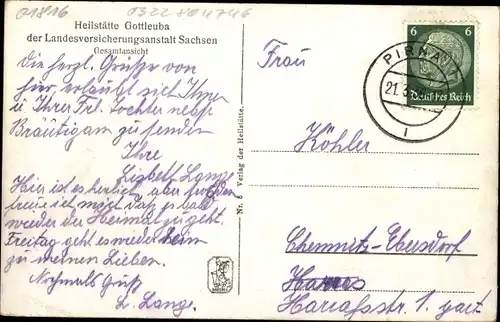 01816
0322 804746
Heilstätte Gottleuba
der Landesversicherungsanstalt Sachsen
Gesamtansicht
Die herzl. Grüße von
hier, erlaubt sich Ihnen
u Ihrer Frl. Tochter nebst
Bräutigam zu senden
Ihre
Lisbeth Lange
Hier ist es herlich, aber trotzdem
freue ich mich daß es bald
wieder der Heimat zu geht.
Freitag geht es wieder heim
zu meinen Lieben.
Nochmals Gruß
L. Lange.
Nr. 6 Verlag der Heilstätte.
6 6
Deutsches Reich
PIRNA
21.3.
Frau
Köhler
Chemnitz-Ebersdorf
Hariafsstr. 1. part